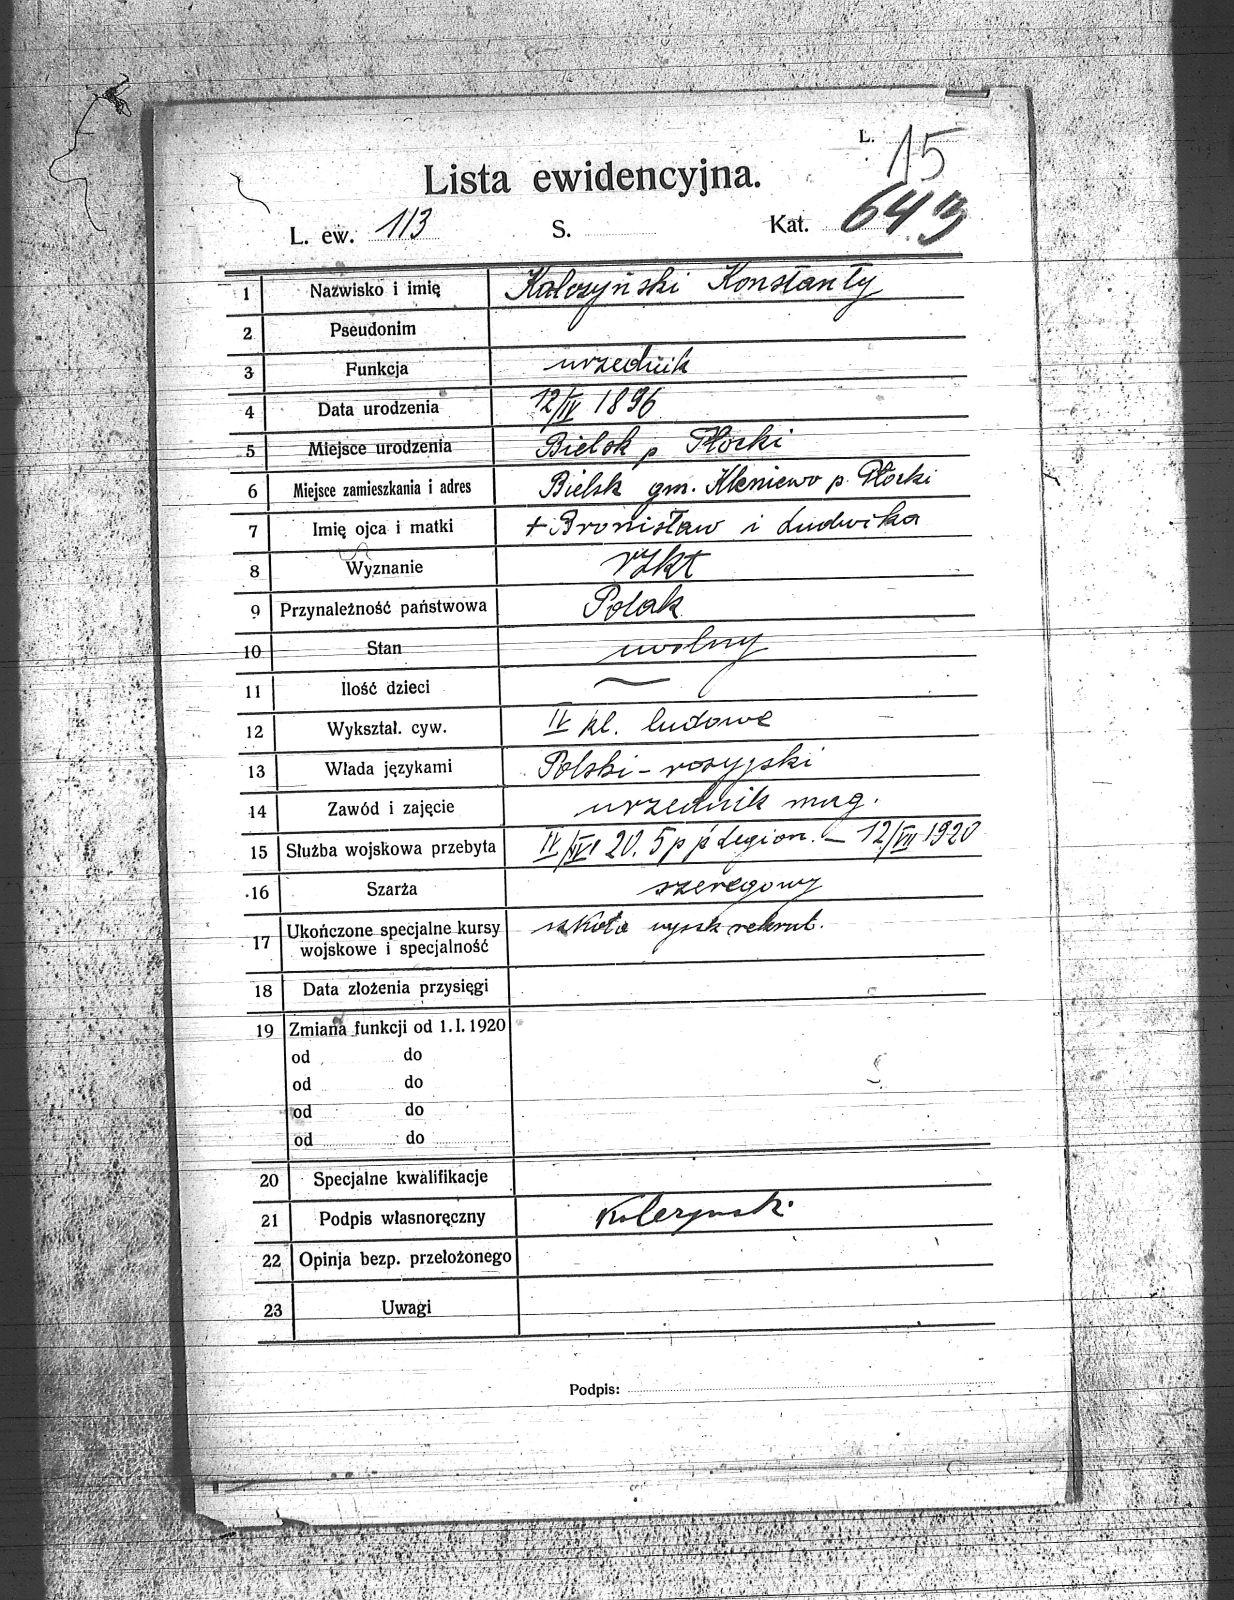 L. 15
Lista ewidencyjna.
L. ew. 113 S. Kat. 643
1 Nazwisko i imię Kalczyński Konstanty
2 Pseudonim
3 Funkcja urzednik
4 Data urodzenia 12/IV 1896
5 Miejsce urodzenia Bielsk p Płocki
6 Miejsce zamieszkania i adres Bielsk gm. Kleniewo p. Płocki
7 Imię ojca i matki + Bronisław i Ludwika
8 Wyznanie rzkt
9 Przynależność państwowa Polak
10 Stan wolny
11 Ilość dzieci —
12 Wykształ. cyw. IV kl. ludowe
13 Włada językami Polski - rosyjski
14 Zawód i zajęcie urzednik mag.
15 Służba wojskowa przebyta 20. 5 p p Legion. – 12/VII 1920
16 Szarża szeregowy
17 Ukończone specjalne kursy szkoła wysk rekrut.
wojskowe i specjalność
18 Data złożenia przysięgi
19 Zmiana funkcji od 1. I. 1920
od do
od do
od do
od do
20 Specjalne kwalifikacje
21 Podpis własnoręczny
22 Opinja bezp. przełożonego
23 Uwagi
Podpis: